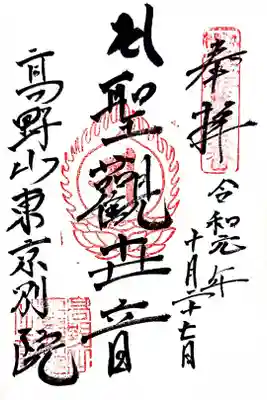 奉拝
令和元年
十月二十七日
聖觀世音
高野山東京別院